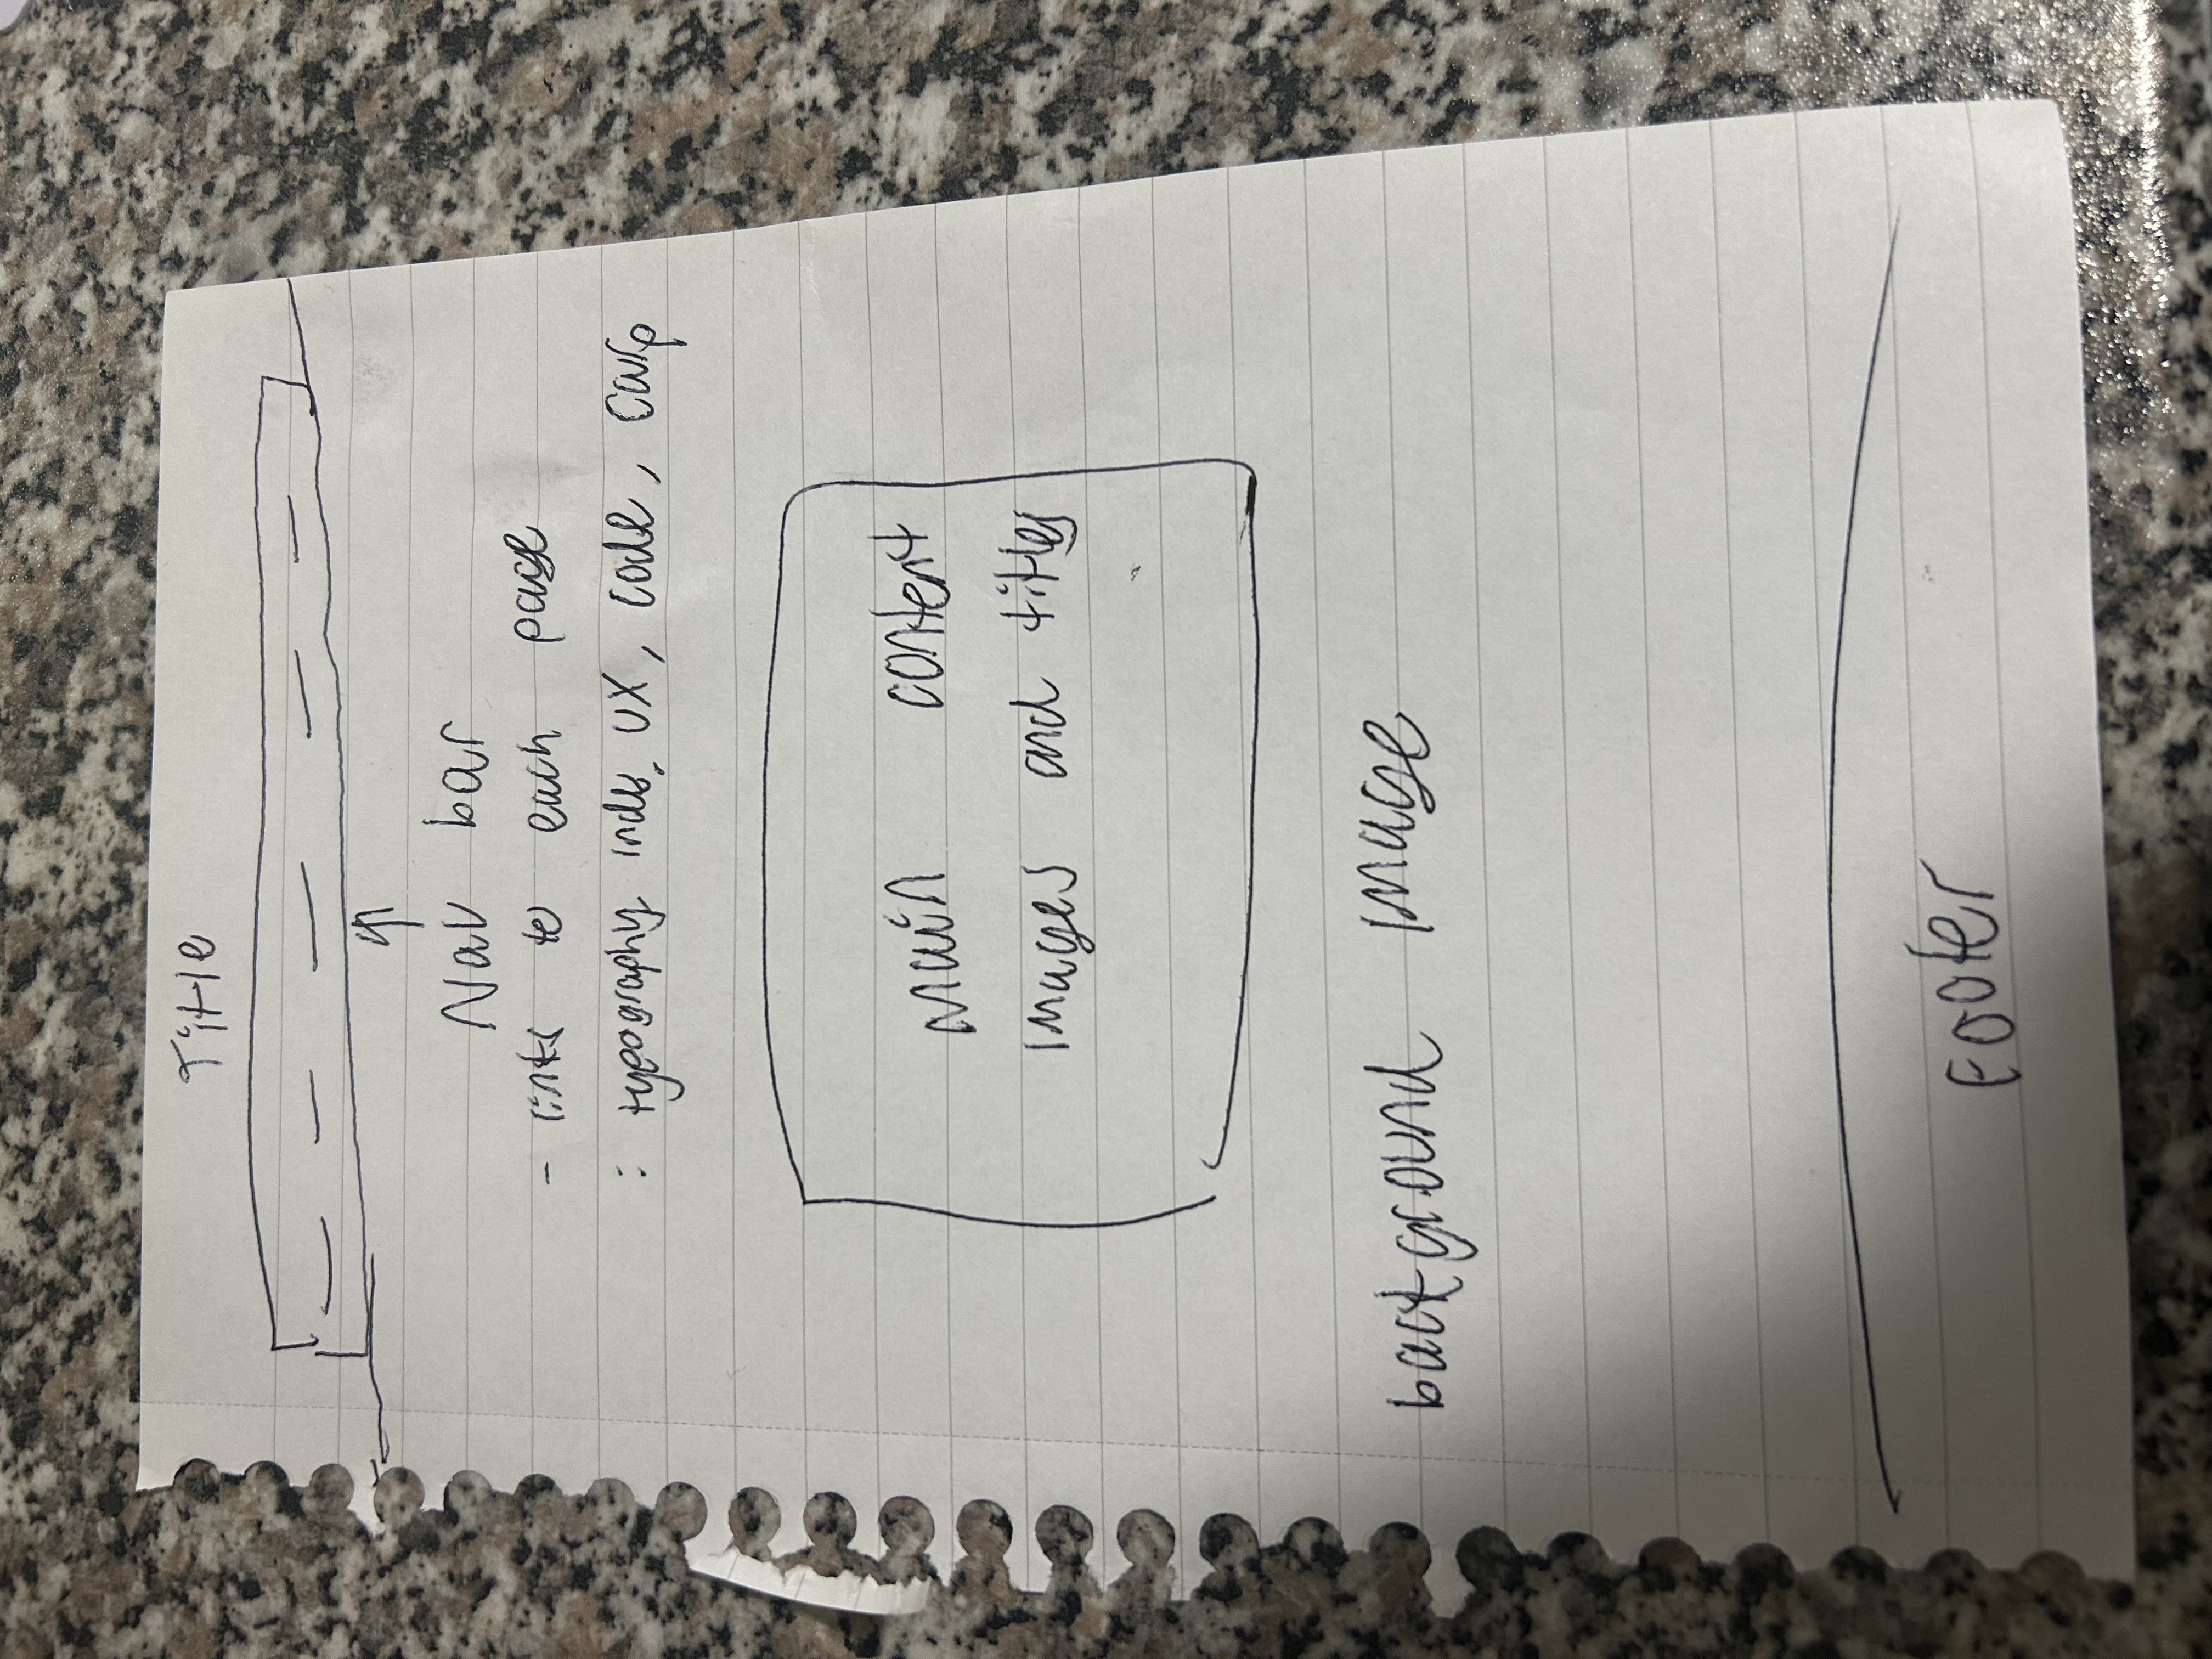 Title
Nav bar
- links to each page
: typography, UX, code, Carp
main content
images and titles
background image
Footer